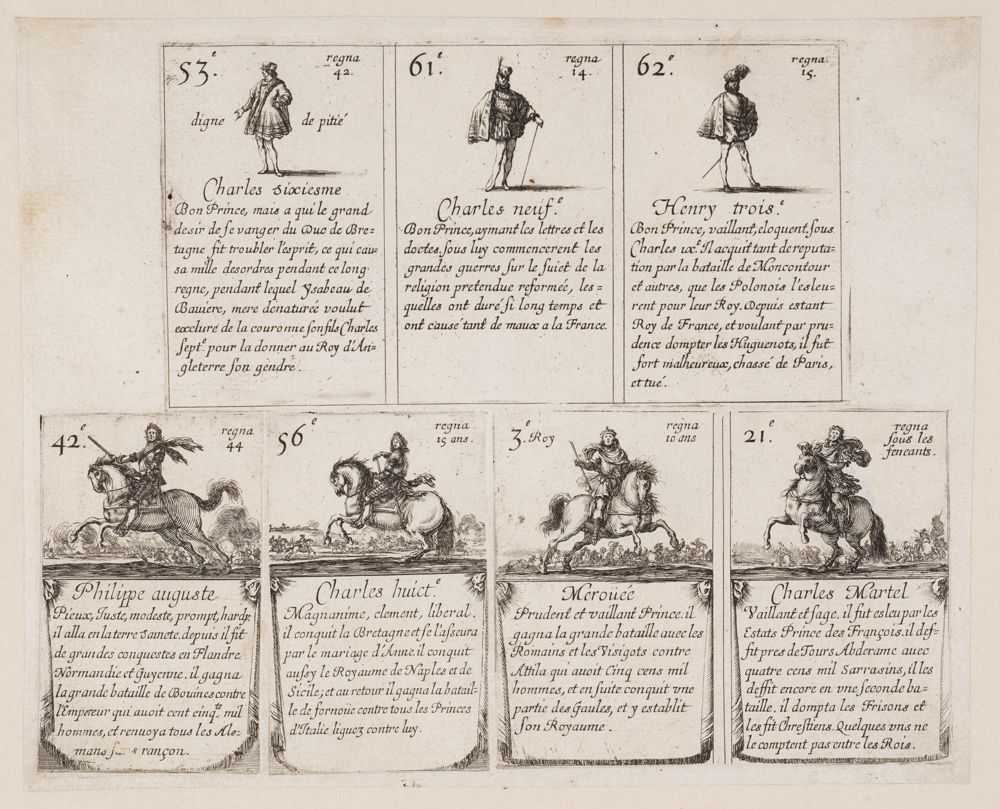 53.e
regna
42.
digne de pitié
Charles sixiesme
Bon Prince, mais a qui le grand
desir de se vanger du Duc de Bre-
tagne fit troubler l'esprit, ce qui cau-
sa mille desordres pendant ce long
regne, pendant lequel ysabeau de
Baviere, mere denaturée voulut
exclure de la couronne son fils Charles
sept.e pour la donner au Roy d'An-
gleterre son gendre.
61.e
regna
14.
Charles neuf.e
Bon Prince, aymant les lettres et les
doctes, sous luy commencerent les
grandes guerres sur le suiet de la
religion pretendue reformée, les-
quelles ont duré si long temps et
ont causé tant de maux a la France.
62.e
regna
15.
Henry trois.e
Bon Prince, vaillant, eloquent, sous
Charles ix.e Il acquit tant de reputa-
tion par la bataille de Moncontour
et autres, que les Polonois l'esleu-
rent pour leur Roy. Depuis estant
Roy de France, et voulant par pru-
dence dompter les Huguenots, il fut
fort malheureux, chassé de Paris,
et tué.
42.e
regna
44
Philippe auguste
Pieux, Iuste, modeste, prompt, hardi
il alla en la terre Saincte. depuis il fit
de grandes conquestes en Flandre
Normandie et Guyenne. il gagna
la grande bataille de Bouines contre
l'Empereur qui auoit cent cinq.te mil
hommes, et renuoya tous les Ale-
mans sans rançon.
56e
regna
15 ans.
Charles huict.e
Magnanime, clement, liberal.
il conquit la Bretagne et se l'asseura
par le mariage d'Anne. il conquit
aussy le Royaume de Naples et de
Sicile; et au retour il gagna la batail-
le de fornoüe contre tous les Princes
d'Italie liguez contre luy.
3.e Roy
regna
10 ans
Meroüée
Prudent et vaillant Prince. il
gagna la grande bataille auec les
Romains et les Visigots contre
Attila qui auoit Cinq cens mil
hommes, et en suite conquit vne
partie des Gaules, et y establit
son Royaume.
21.e
regna
sous les
feneants.
Charles Martel
Vaillant et sage. il fut esleu par les
Estats Prince des François. il def-
fit pres de Tours Abderame auec
quatre cens mil Sarrasins, il les
deffit encore en vne seconde ba-
taille. il dompta les Frisons et
les fit Chrestiens. Quelques vns ne
le comptent pas entre les Rois.